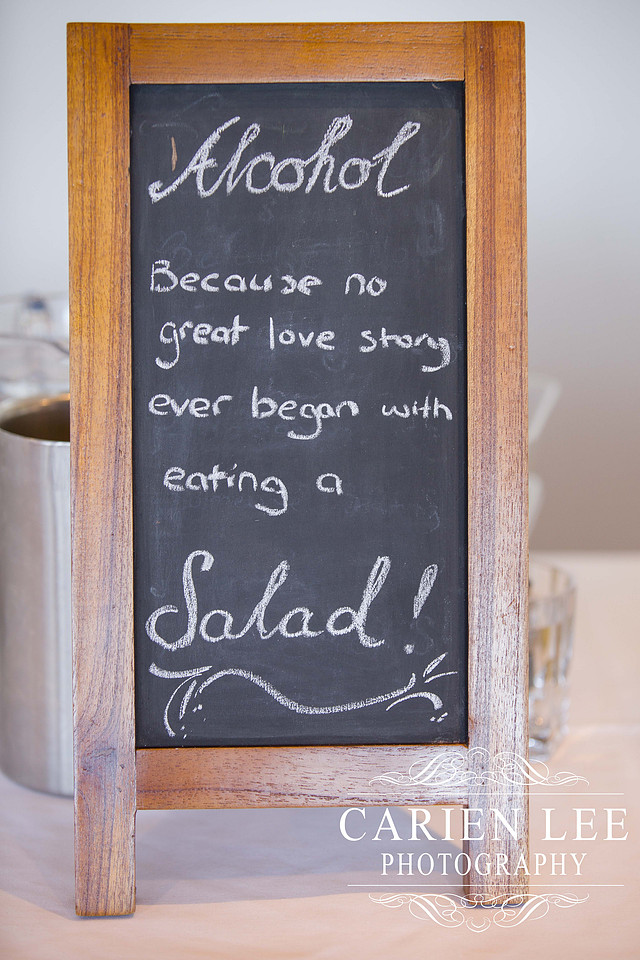 Alcohol
Because no
great love story
ever began with
eating a
Salad!
CARIEN LEE
PHOTOGRAPHY